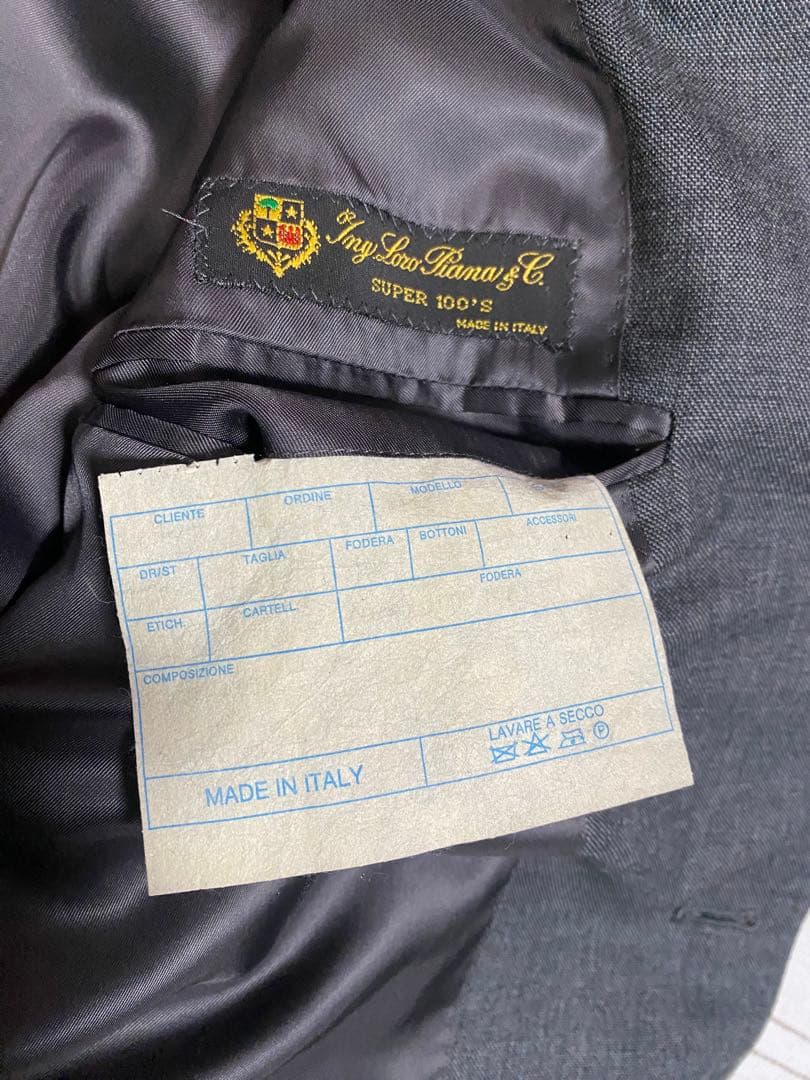 Ing. Loro Piana & C.
SUPER 100'S
MADE IN ITALY
CLIENTE ORDINE MODELLO
DR/ST TAGLIA FODERA BOTTONI ACCESSORI
ETICH. CARTELL FODERA
COMPOSIZIONE
MADE IN ITALY
LAVARE A SECCO
P